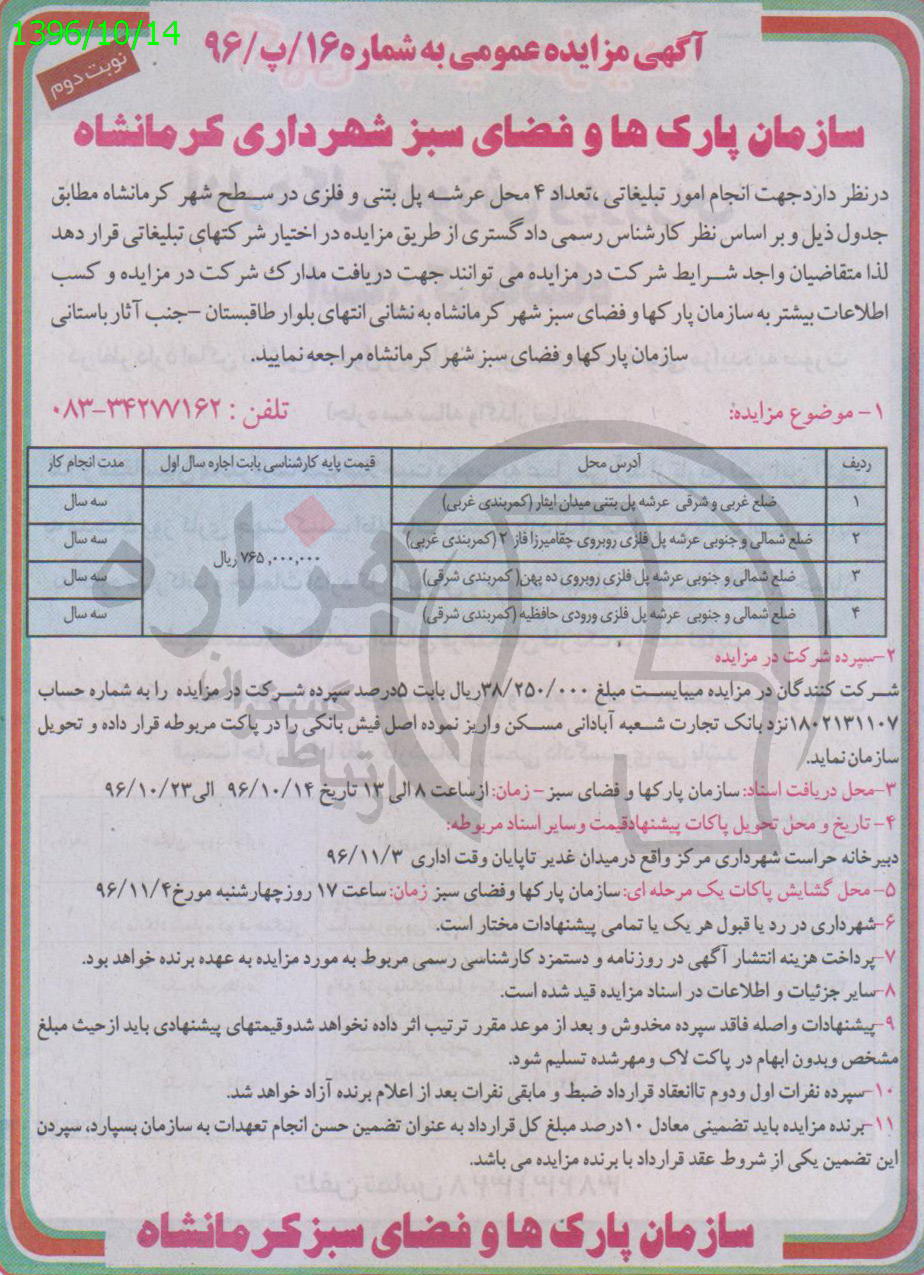 1396/10/14
نوبت دوم
آگهی مزایده عمومی به شماره ۱۶/پ/۹۶
سازمان پارک ها و فضای سبز شهرداری کرمانشاه
درنظر داردجهت انجام امور تبلیغاتی ،تعداد ۴ محل عرشـه پل بتنی و فلزی در سـطح شهر کرمانشاه مطابق
جدول ذیل و بر اساس نظر کارشناس رسمی دادگستری از طریق مزایده در اختیار شرکتهای تبلیغاتی قرار دهد
لذا متقاضیان واجد شـرایط شرکت در مزایده می توانند جهت دریافت مدارک شرکت در مزایده و کسب
اطلاعات بیشتر به سازمان پارکها و فضای سبز شهر کرمانشاه به نشانی انتهای بلوار طاقبستان -جنب آثار باستانی
سازمان پارکها و فضای سبز شهر کرمانشاه مراجعه نمایید.
۱- موضوع مزایده: تلفن : ۳۴۲۷۷۱۶۲-۰۸۳
ردیف آدرس محل قیمت پایه کارشناسی بابت اجاره سال اول مدت انجام کار
۱ ضلع غربی و شرقی عرشه پل بتنی میدان ایثار (کمربندی غربی) سه سال
۲ ضلع شمالی و جنوبی عرشه پل فلزی روبروی چقامیرزا فاز ۲ (کمربندی غربی) سه سال
۷۶۵,۰۰۰,۰۰۰ ریال
۳ ضلع شمالی و جنوبی عرشه پل فلزی روبروی ده پهن( کمربندی شرقی) سه سال
۴ ضلع شمالی و جنوبی عرشه پل فلزی ورودی حافظیه (کمربندی شرقی) سه سال
۲-سپرده شرکت در مزایده
شـرکت کنندگان در مزایده میبایسـت مبلغ ۳۸/۲۵۰/۰۰۰ریال بابت ۵درصد سپرده شـرکت در مزایده را به شماره حساب
۱۸۰۲۱۳۱۱۰۷نزد بانک تجارت شـعبه آبادانی مسـکن واریز نموده اصل فیش بانکی را در پاکت مربوطه قرار داده و تحویل
سازمان نماید.
۳-محل دریافت اسناد: سازمان پارکها و فضای سبز - زمان: ازساعت ۸ الی ۱۳ تاریخ ۹۶/۱۰/۱۴ الی۹۶/۱۰/۲۳
۴- تاریخ و محل تحویل پاکات پیشنهادقیمت وسایر اسناد مربوطه:
دبیرخانه حراست شهرداری مرکز واقع درمیدان غدیر تاپایان وقت اداری ۹۶/۱۱/۳
۵- محل گشایش پاکات یک مرحله ای: سازمان پارکها وفضای سبز زمان: ساعت ۱۷ روزچهارشنبه مورخ۹۶/۱۱/۴
۶-شهرداری در رد یا قبول هر یک یا تمامی پیشنهادات مختار است.
۷-پرداخت هزینه انتشار آگهی در روزنامه و دستمزد کارشناسی رسمی مربوط به مورد مزایده به عهده برنده خواهد بود.
۸-سایر جزئیات و اطلاعات در اسناد مزایده قید شده است.
۹-پیشنهادات واصله فاقد سپرده مخدوش و بعد از موعد مقرر ترتیب اثر داده نخواهد شدوقیمتهای پیشنهادی باید ازحیث مبلغ
مشخص وبدون ابهام در پاکت لاک ومهرشده تسلیم شود.
۱۰-سپرده نفرات اول ودوم تاانعقاد قرارداد ضبط و مابقی نفرات بعد از اعلام برنده آزاد خواهد شد.
۱۱-برنده مزایده باید تضمینی معادل ۱۰درصد مبلغ کل قرارداد به عنوان تضمین حسن انجام تعهدات به سازمان بسپارد، سپردن
این تضمین یکی از شروط عقد قرارداد با برنده مزایده می باشد.
سازمان پارک ها و فضای سبز کرمانشاه
هزاره
ارتباط